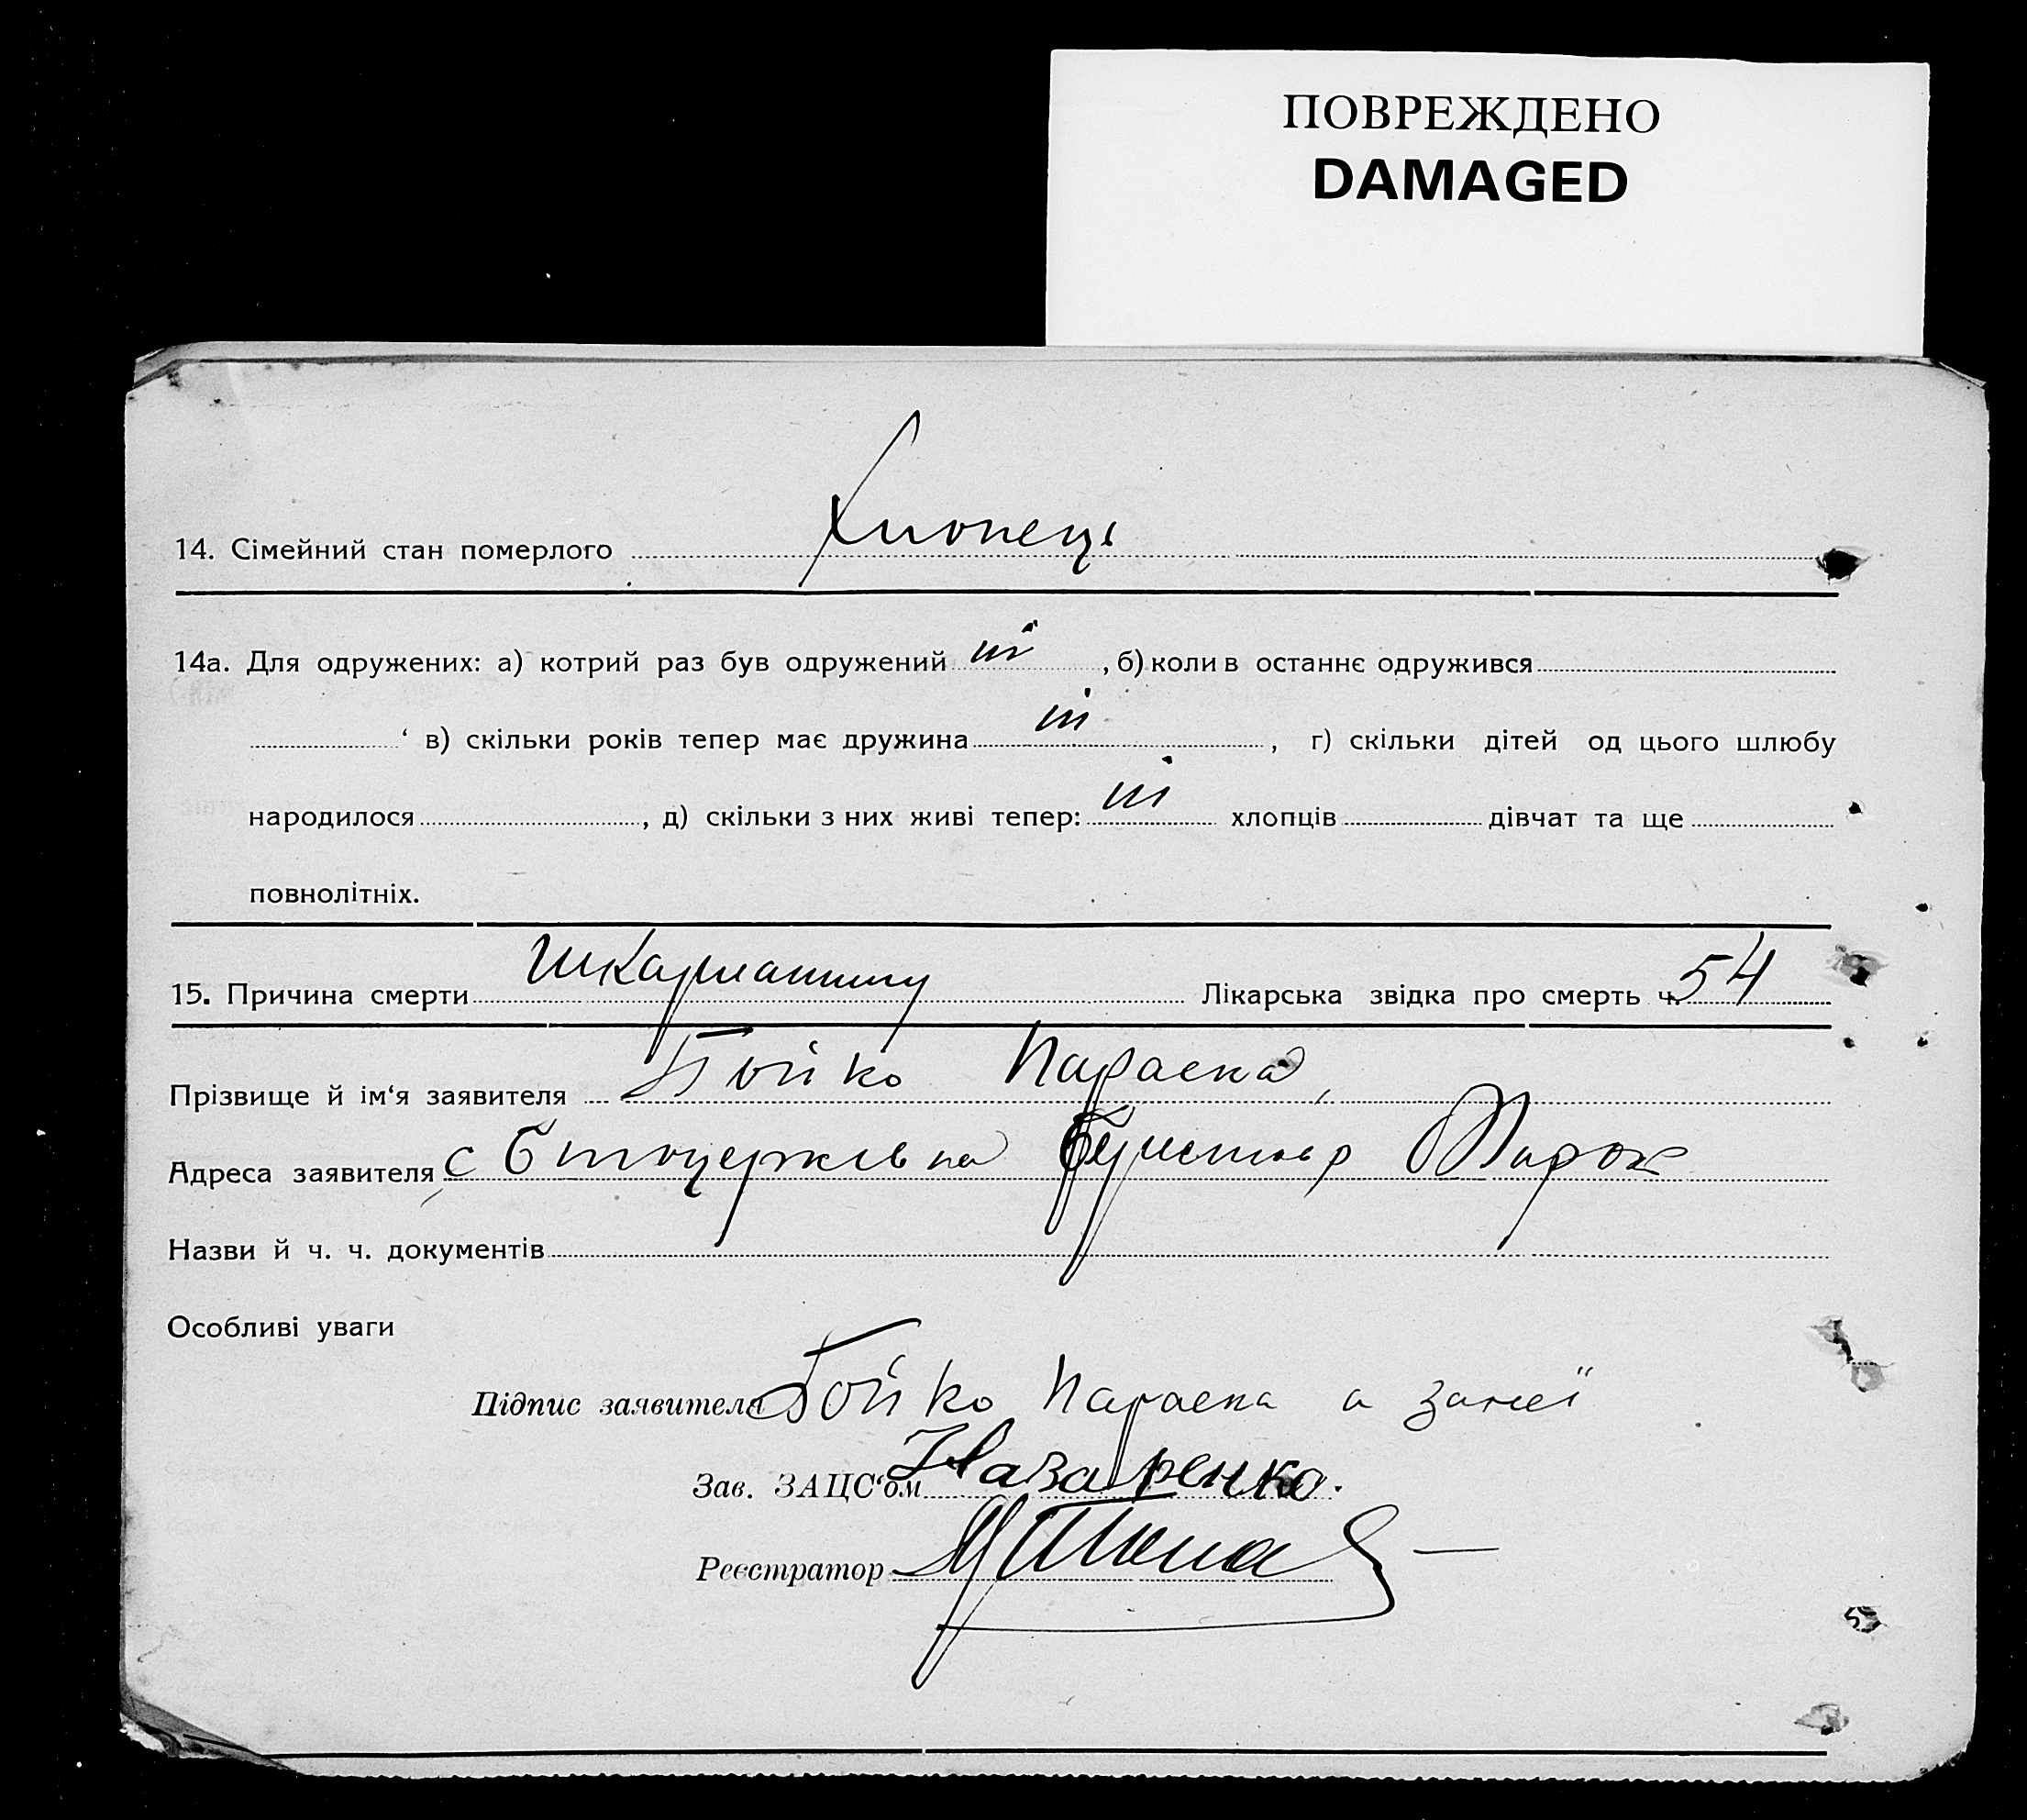 ПОВРЕЖДЕНО
DAMAGED
14. Сімейний стан померлого Хлопець
14а. Для одружених: а) котрий раз був одружений ні, б) коли в останнє одружився
‘ в) скільки років тепер має дружина ні, г) скільки дітей од цього шлюбу
народилося, д) скільки з них живі тепер: ні хлопців дівчат та ще
повнолітніх.
15. Причина смерти Шкарлатину Лікарська звідка про смерть ч. 54
Прізвище й ім‘я заявителя Бойко Параска
Адреса заявителя с
Назви й ч. ч. документів
Особливі уваги
Підпис заявителя Бойко Параска а за неї
Зав. ЗАЦС‘ом Назаренко.
Реєстратор